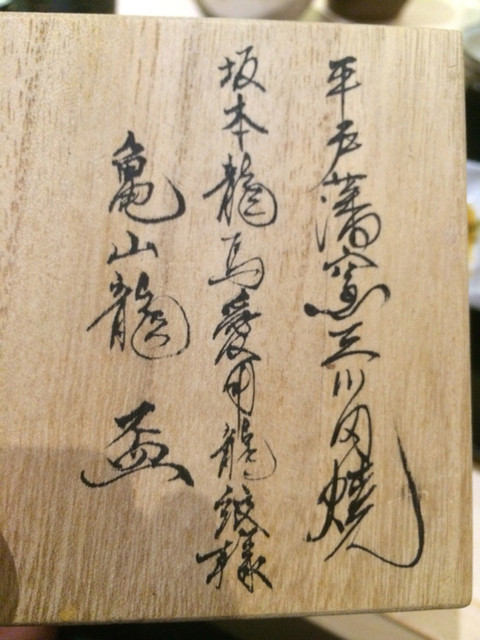 平戸藩窯三川内焼
坂本龍馬愛用龍紋様
亀山龍 盃